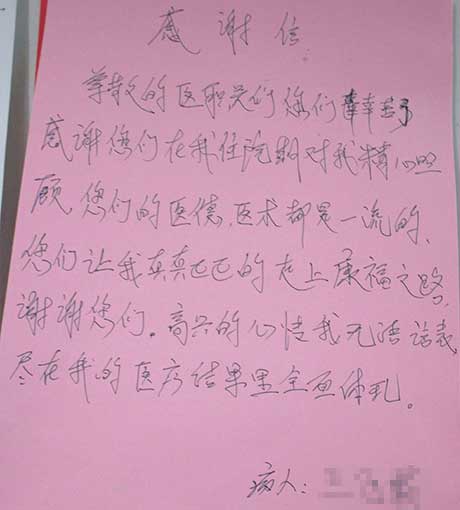 感谢信
尊敬的医职员们您们辛幸苦了
感谢您们在我住院期对我精心照
顾 您们的医德、医术都是一流的、
您们让我真真正正的走上康福之路、
谢谢您们。高兴的心情我无法话表,
尽在我的医疗结果里全面体现。
病人: